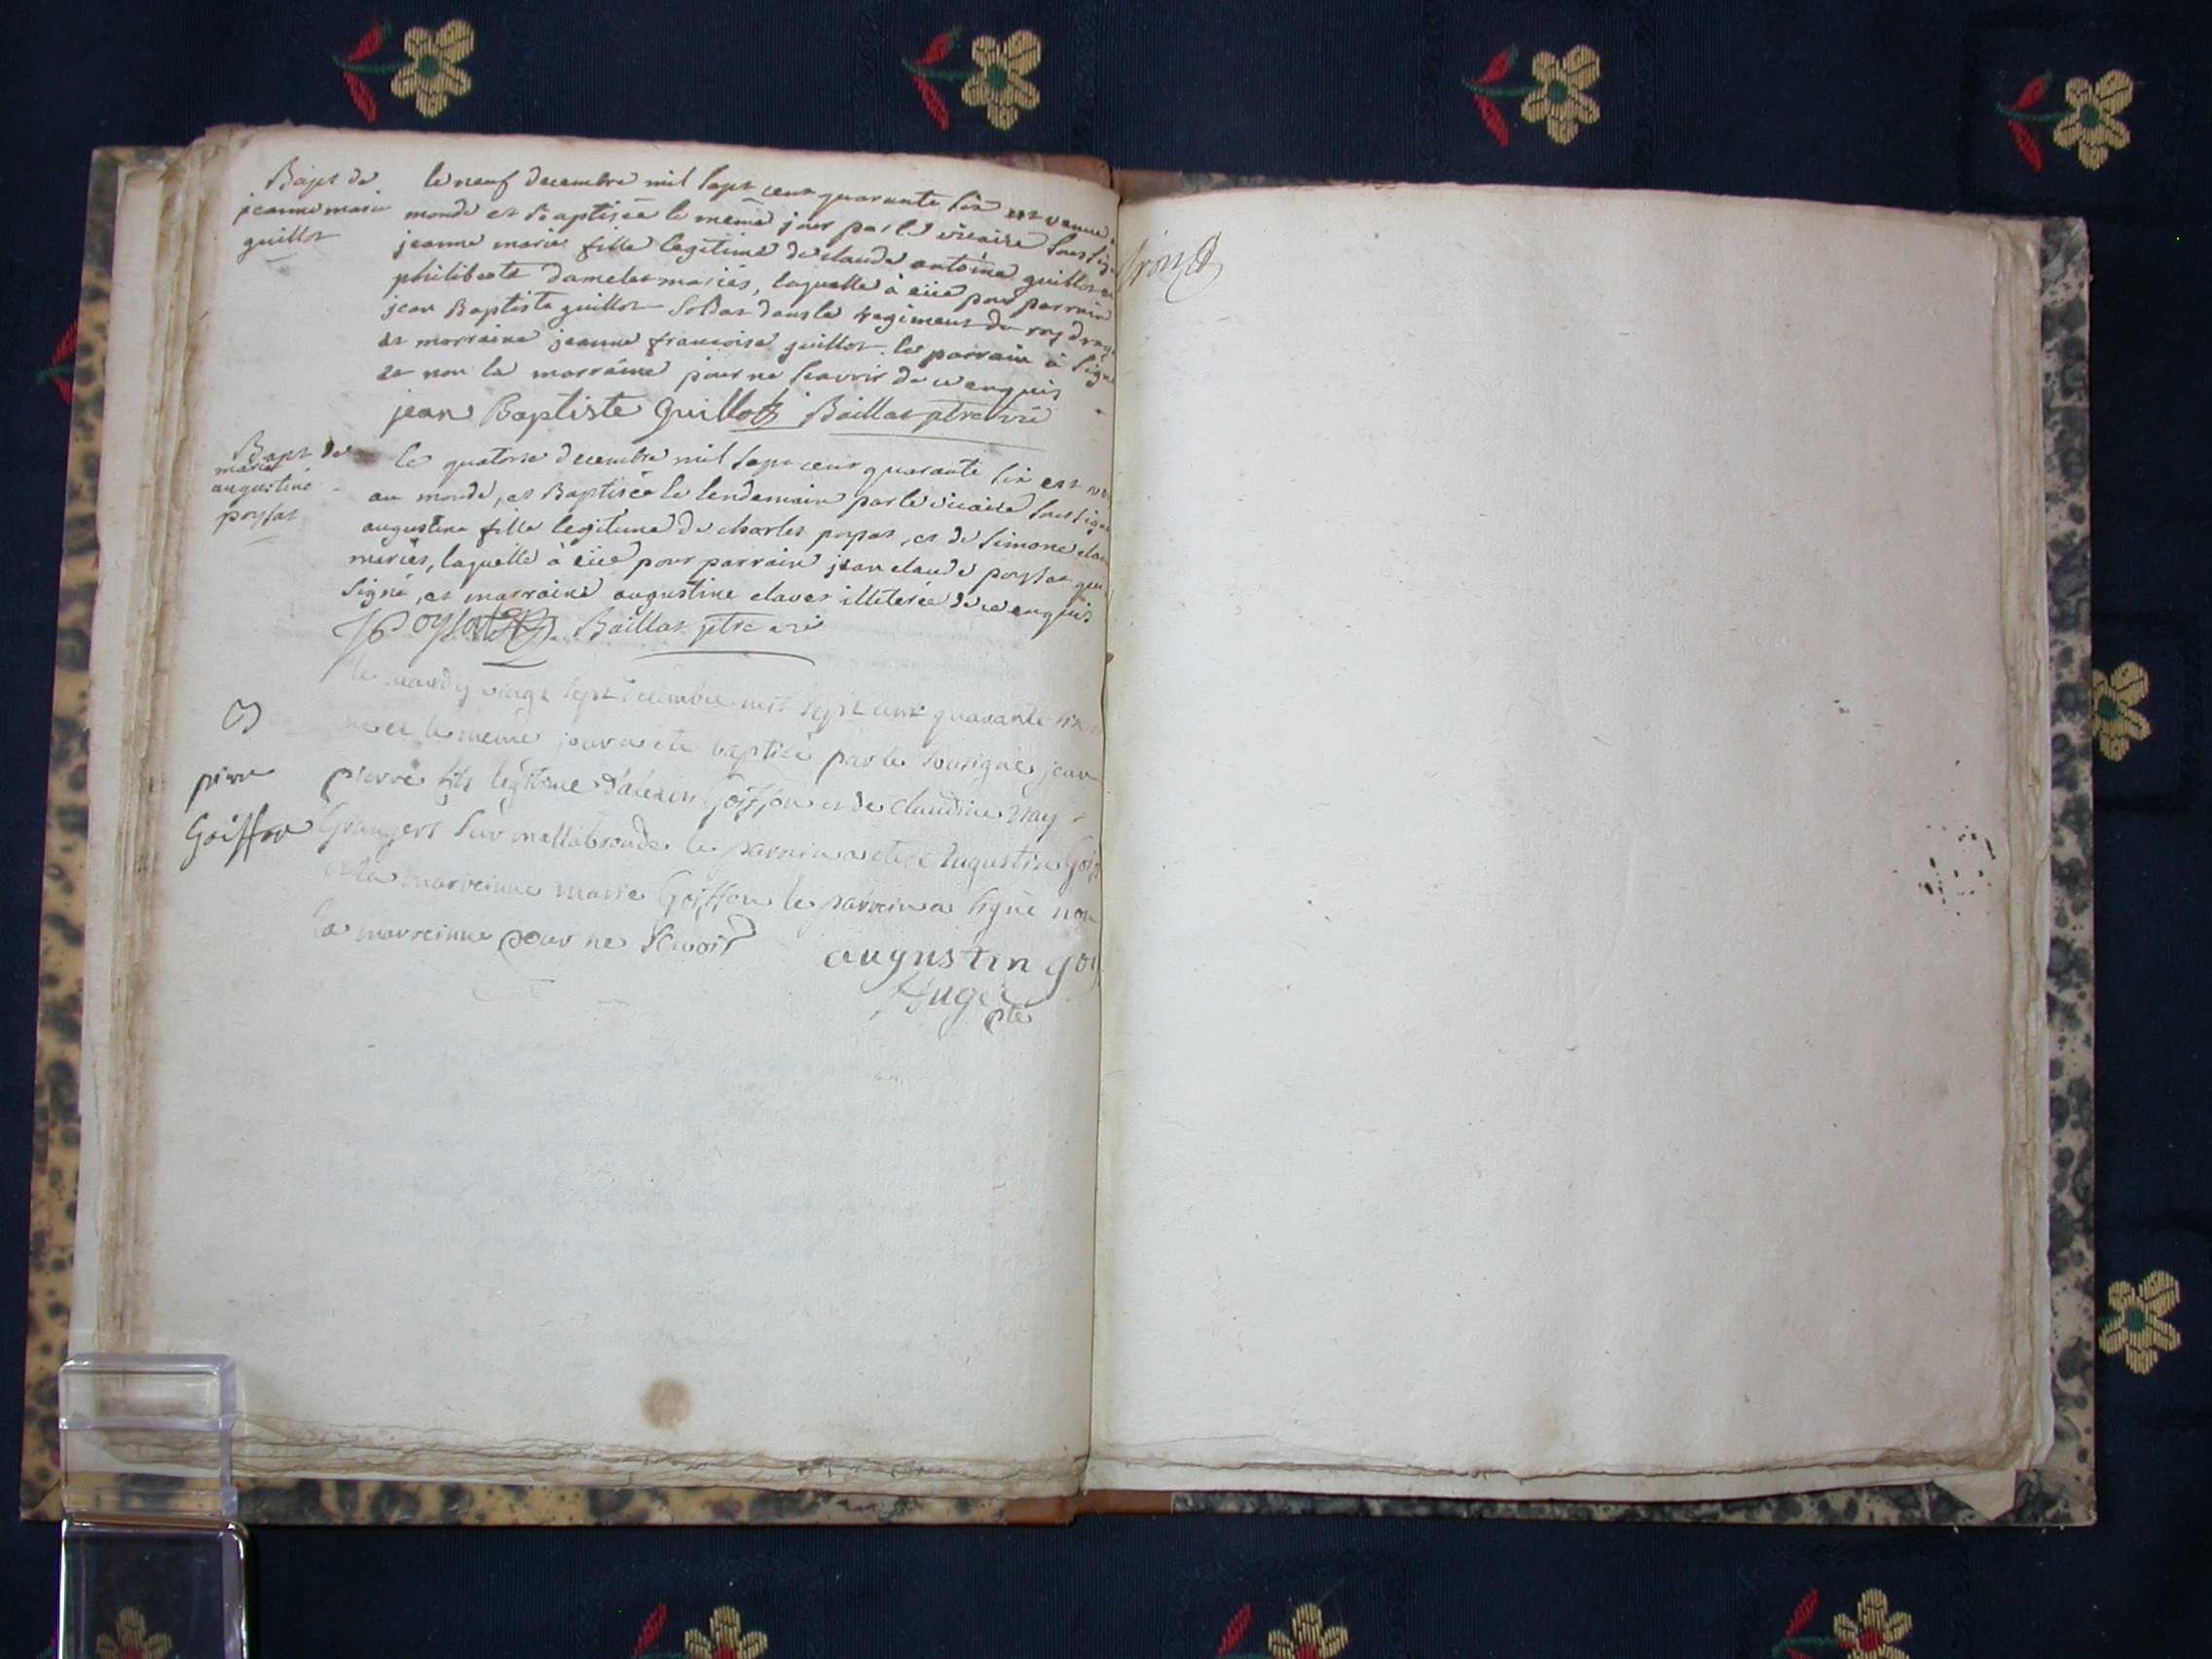 Bapt de
jeanne marie
guillot
le neuf decembre mil sept cent quarante six est venue
monde et Baptisée le meme jour par le vicaire soussig
jeanne marie fille legitime de claude antoine guillot et
philiberte damelet mariés, laquelle à eüe pour parrain
jean Baptiste guillot soldat dans le regiment du roy drag
et marraine jeanne francoise guillot. le parrain à signé
et non la marraine pour ne scavoir de ce enquis
jean Baptiste Guillot Baillat ptre vic
Bapt de
marie
augustine
poysat
le quatorse decembre mil sept cent quarante six est
au monde, et Baptisée le lendemain par le vicaire soussigné
augustine fille legitime de charles poysat, et de simone
mariés, laquelle à eüe pour parrain jean claude poysat qui
signé, et marraine augustine clavet illiterée de ce enquis
Poysat Baillat ptre vic
le mardy vingt sept decembre mil sept cent quarante six
et le meme jour a eté baptisé par le sousigné jean
pierre
Goiffon
pierre fils legitime d'alexis Goiffon et de claudine Nay
Grangers sur mallabronde le parrein a eté Augustin Goif
et la marreinne marie Goiffon le parrein a signé non
la marreinne pour ne scavoir
augustin goi
Auger
ptre